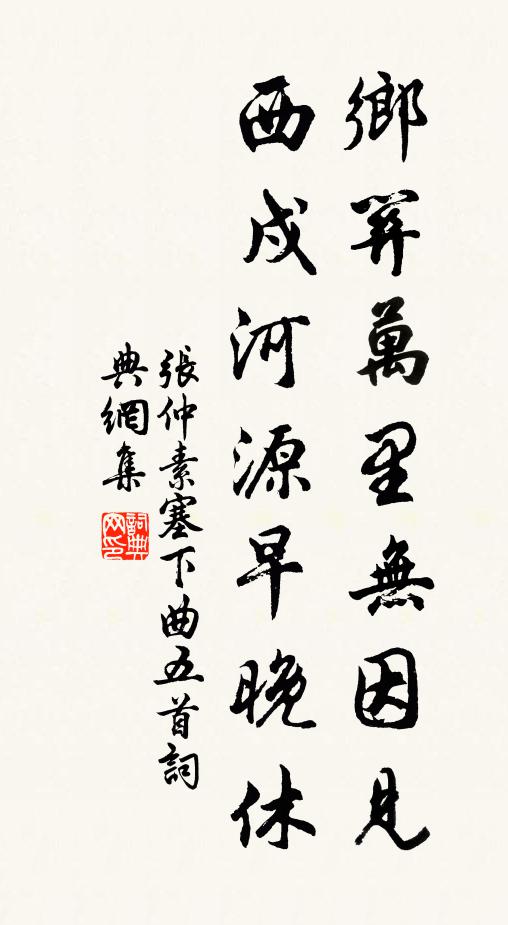 鄉關萬里無因見
西戍河源早晚休
張仲素塞下曲五首詞
典網集
詞典
网印